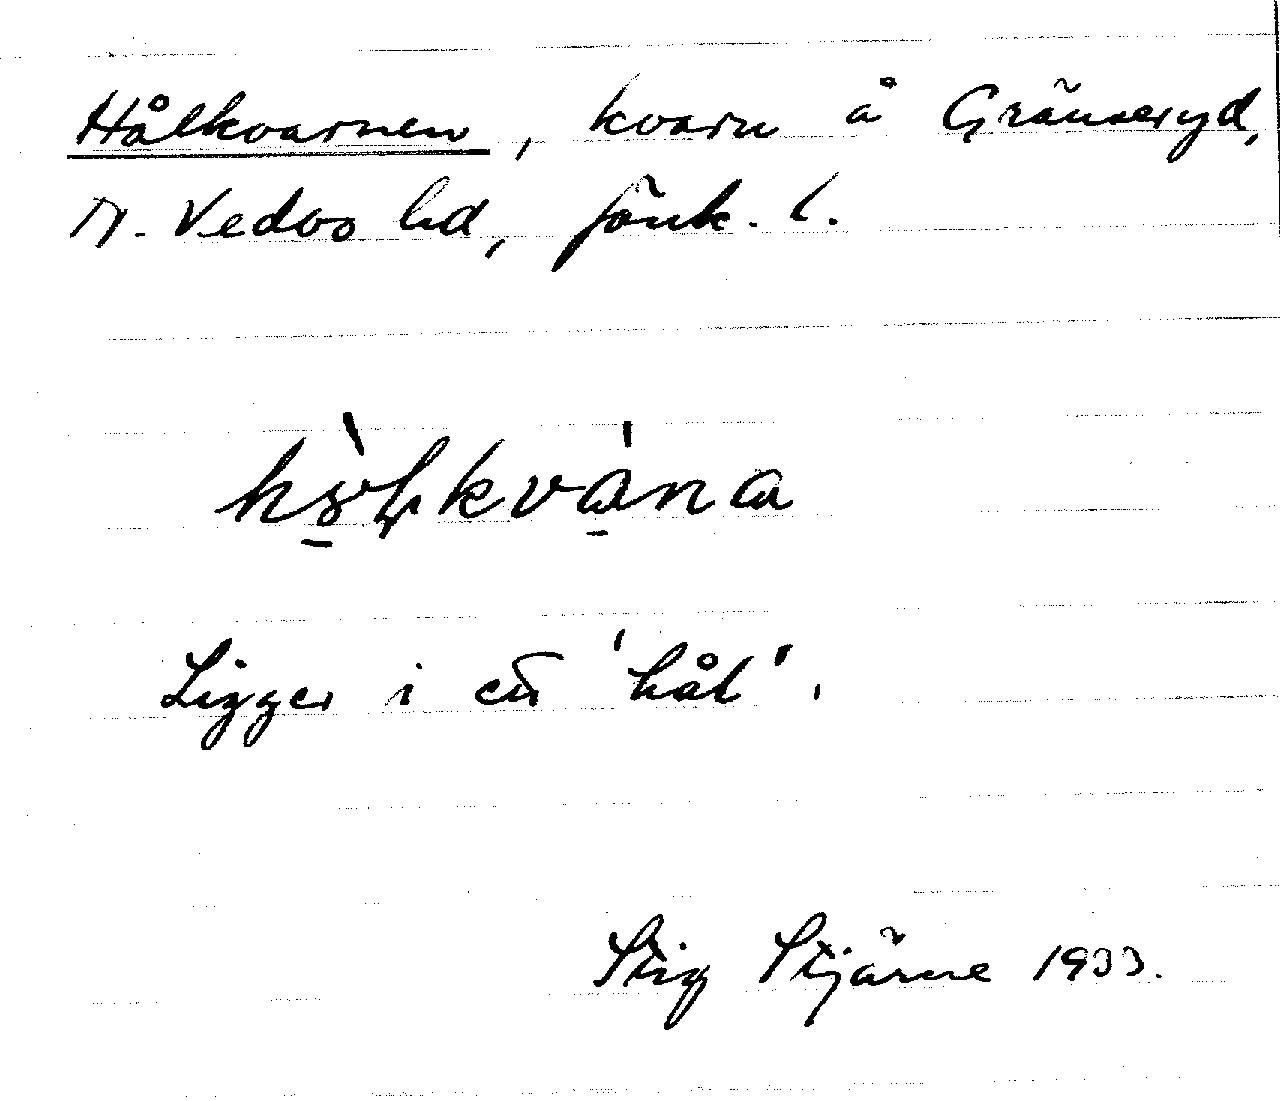 Hålkvarnen, kvarn å Gränseryd,
N. Vedbo hd, Jönk. l.
Ligger i ett 'hål'.
Stig Stjärne 1933.